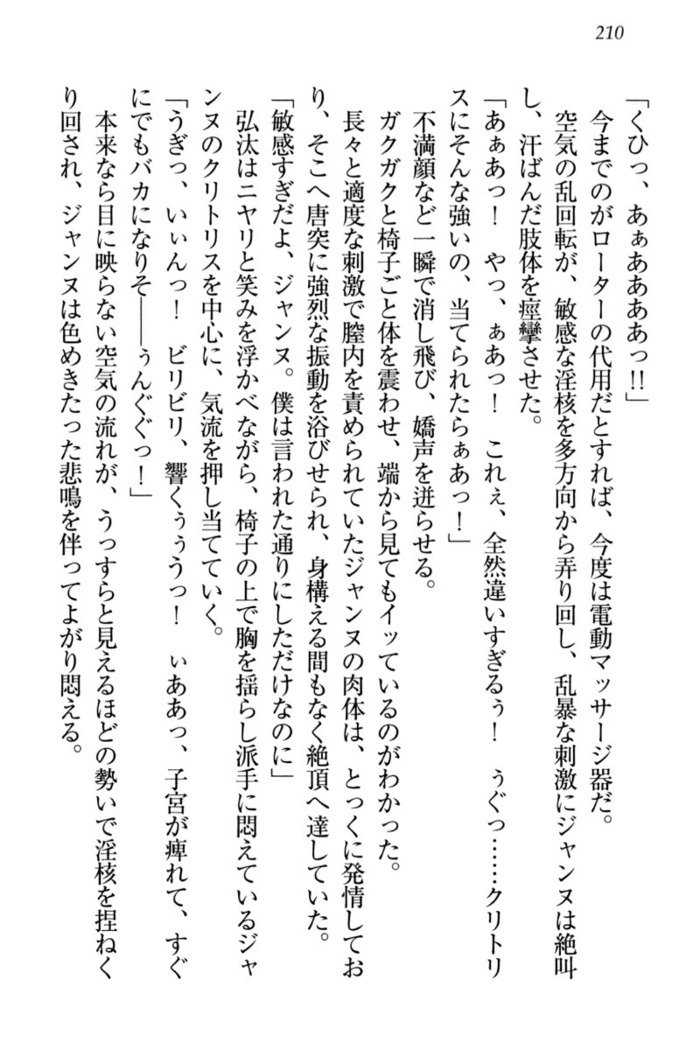 210
「くひっ、あぁああああっ!!」
　今までのがローターの代用だとすれば、今度は電動マッサージ器だ。
　空気の乱回転が、敏感な淫核を多方向から弄り回し、乱暴な刺激にジャンヌは絶叫
し、汗ばんだ肢体を痙攣させた。
「あぁあっ！　やっ、ぁあっ！　これぇ、全然違いすぎるぅ！　ぅぐっ……クリトリ
スにそんな強いの、当てられたらぁあっ！」
　不満顔など一瞬で消し飛び、嬌声を迸らせる。
　ガクガクと椅子ごと体を震わせ、端から見てもイッているのがわかった。
　長々と適度な刺激で膣内を責められていたジャンヌの肉体は、とっくに発情してお
り、そこへ唐突に強烈な振動を浴びせられ、身構える間もなく絶頂へ達していた。
「敏感すぎだよ、ジャンヌ。僕は言われた通りにしただけなのに」
　弘汰はニヤリと笑みを浮かべながら、椅子の上で胸を揺らし派手に悶えているジャ
ンヌのクリトリスを中心に、気流を押し当てていく。
「うぎっ、いぃんっ！　ビリビリ、響くぅぅうっ！　ぃああっ、子宮が痺れて、すぐ
にでもバカになりそ――ぅんぐぐっ！」
　本来なら目に映らない空気の流れが、うっすらと見えるほどの勢いで淫核を捏ねく
り回され、ジャンヌは色めきたった悲鳴を伴ってよがり悶える。